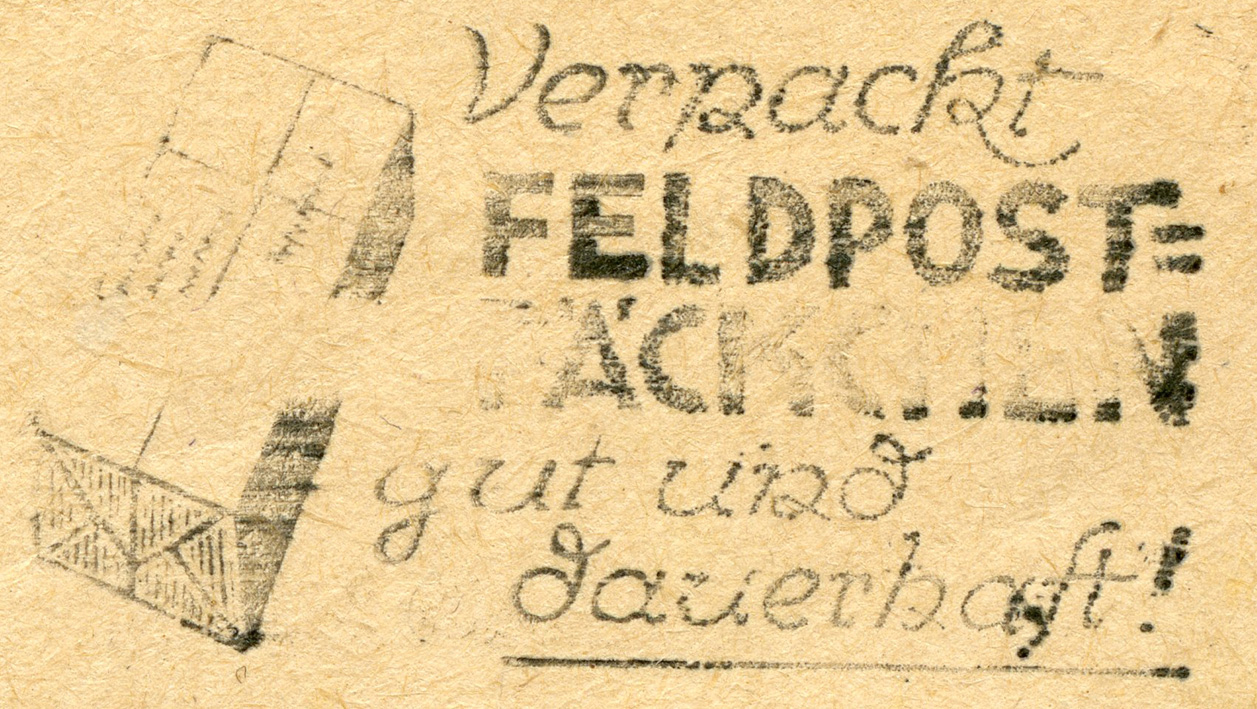 Verpackt
FELDPOST=
PÄCKCHEN
gut und
dauerhaft!